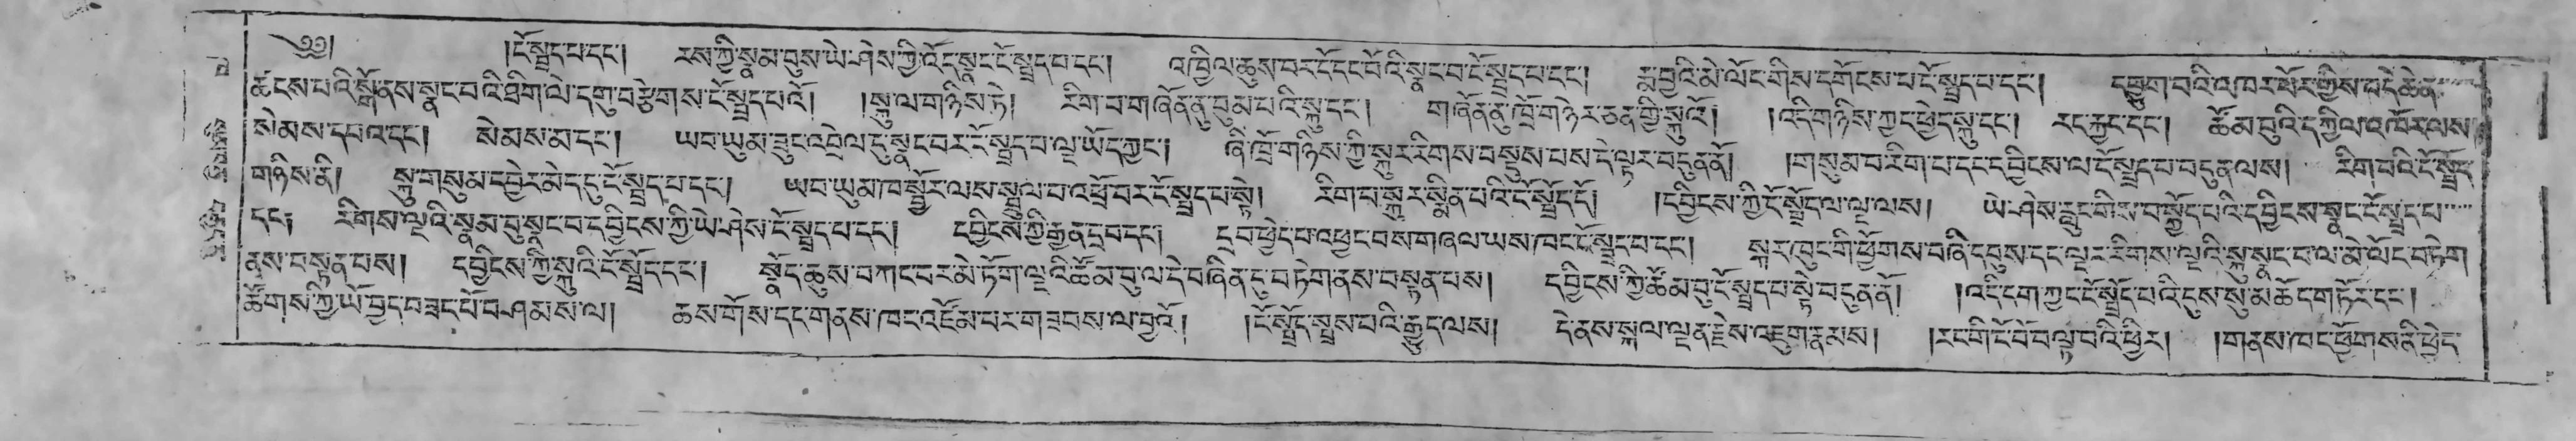 ༄༅། །ངོ་སྤྲད་པ་དང་། རས་ཀྱི་སྣམ་བུས་ཡེ་ཤེས་ཀྱི་འོད་སྣང་ངོ་སྤྲད་པ་དང་། འཁྱིལ་ཆུས་བར་དོ་དང་པོའི་སྣང་བ་ངོ་སྤྲད་པ་དང་། རྨ་བྱའི་མེ་ལོང་གིས་དགོངས་པ་ངོ་སྤྲད་པ་དང་། དབྱུག་པའི་འཁར་སོར་གྱིས་བདེ་ཆེན་
ཚངས་པའི་སྒོ་ནས་སྣང་བའི་ཐིག་ལེ་དགུ་བརྩེགས་ངོ་སྤྲད་པའོ། །སྐུ་ལ་གཉིས་ཏེ། རིག་པ་གཞོན་ནུ་བུམ་པའི་སྐུ་དང་། གཞོན་ནུ་ཁྲོ་གཉེར་ཅན་གྱི་སྐུའོ། །འདི་གཉིས་ཀྱང་ཕྱེད་སྐུ་དང་། རང་རྐྱང་དང་། ཚོམ་བུའི་དཀྱིལ་འཁོར་ལས།
སེམས་དཔའ་དང་། སེམས་མ་དང་། ཡབ་ཡུམ་ཟུང་འབྲེལ་དུ་སྣང་བར་ངོ་སྤྲད་པ་ལྔ་ཡོད་ཀྱང་། ཞི་ཁྲོ་གཉིས་ཀྱི་སྐུར་རིགས་བསྡུས་པས་དེ་ལྟར་བདུན་ནོ། །གསུམ་པ་རིག་པ་དང་དབྱིངས་ལ་ངོ་སྤྲད་པ་བདུན་ལས། རིག་པའི་ངོ་སྤྲོད་
གཉིས་ནི། སྐུ་གསུམ་དབྱེར་མེད་དུ་ངོ་སྤྲད་པ་དང་། ཡབ་ཡུམ་ཁ་སྦྱོར་ལས་སྤྲུལ་པ་འཕྲོ་བར་ངོ་སྤྲད་པ་སྟེ། རིག་པ་སྐུར་སྨིན་པའི་ངོ་སྤྲོད་དོ། །དབྱིངས་ཀྱི་ངོ་སྤྲོད་ལ་ལྔ་ལས། ཡེ་ཤེས་རླུང་གིས་བསྐྱོད་པའི་དབྱིངས་སྣང་ངོ་སྤྲད་པ་
དང་། རིགས་ལྔའི་སྣམ་བུ་སྣང་བ་དབྱིངས་ཀྱི་ཡེ་ཤེས་ངོ་སྤྲད་པ་དང་། དབྱིངས་ཀྱི་རྒྱན་དྲ་བ་དང་། དྲྭ་ཕྱེད་པ་འཕྱང་བས་གཞལ་ཡས་ཁང་ངོ་སྤྲད་པ་དང་། སྐར་ཁུང་གི་ཕྱོགས་བཞི་དབུས་དང་ལྔར་རིགས་ལྔའི་སྐུ་སྣང་བ་ལ་མེ་ལོང་བཏེག་
ནས་བསྟན་པས། དབྱིངས་ཀྱི་སྐུའི་ངོ་སྤྲོད་དང་། སྣོད་ཆུས་བཀང་བར་མེ་ཏོག་ལྔའི་ཚོམ་བུ་ལ་དེ་བཞིན་དུ་བཏེག་ནས་བསྟན་པས། དབྱིངས་ཀྱི་ཚོམ་བུ་ངོ་སྤྲད་པ་སྟེ་བདུན་ནོ། །འདི་དག་ཀྱང་ངོ་སྤྲོད་པའི་དུས་སུ་མཆོད་གཏོར་དང་།
ཚོགས་ཀྱི་ཡོ་བྱད་བཟང་པོ་བཤམས་ལ། ཆས་གོས་དང་གནས་ཁང་འཛོམ་པར་གཟབས་ལ་བྱའོ། །ངོ་སྤྲོད་སྤྲས་པའི་རྒྱུད་ལས། དེ་ནས་སྐལ་ལྡན་རྗེས་འཇུག་རྣམས། །རང་གི་ངོ་བོ་བལྟ་བའི་ཕྱིར། །གནས་ཁང་ཕྱོགས་ནི་ཕྱེད་